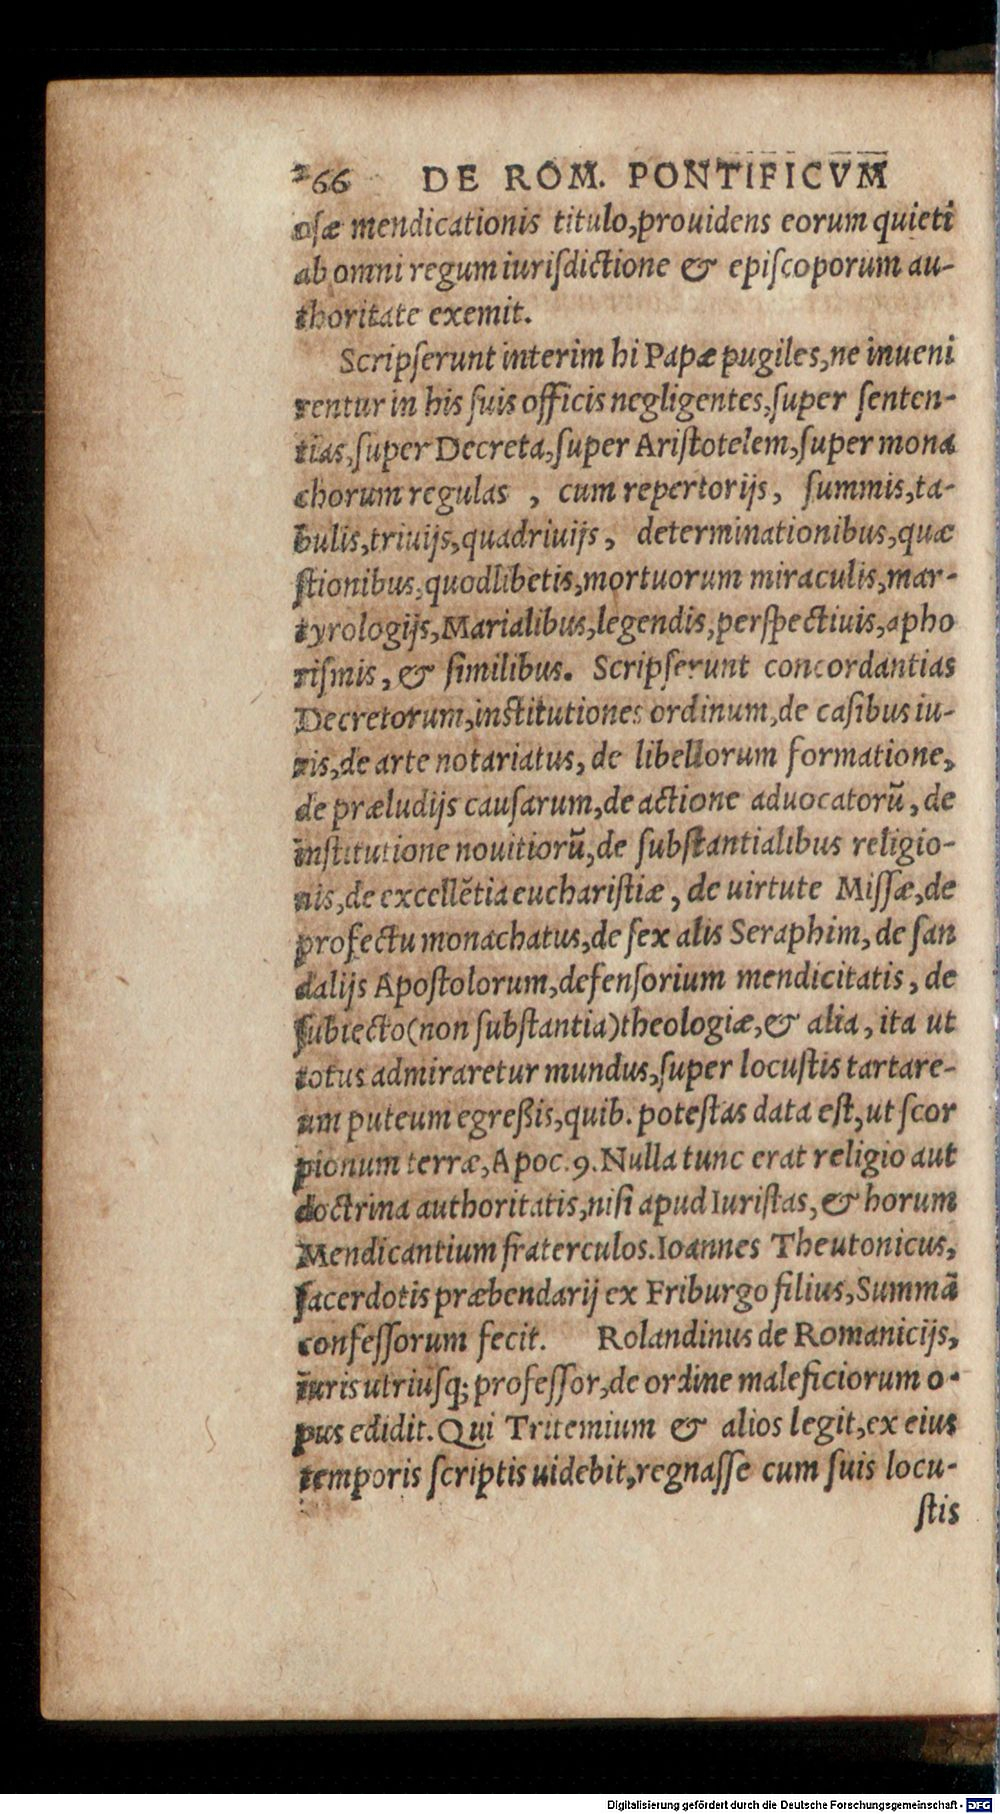 266 DE ROM. PONTIFICVM
osæ mendicationis titulo, prouidens eorum quieti
ab omni regum iurisdictione & episcoporum au-
thoritate exemit.
Scripserunt interim hi Papæ pugiles, ne inueni
rentur in his suis officis negligentes, super senten-
tias, super Decreta, super Aristotelem, super mona
chorum regulas , cum repertorijs, summis, ta-
bulis, triuijs, quadriuijs, determinationibus, quæ
stionibus, quodlibetis, mortuorum miraculis, mar-
tyrologijs, Marialibus, legendis, perspectiuis, apho
rismis, & similibus. Scripserunt concordantias
Decretorum, institutiones ordinum, de casibus iu-
ris, de arte notariatus, de libellorum formatione,
de præludijs causarum, de actione aduocatorũ, de
institutione nouitiorũ, de substantialibus religio-
nis, de excellẽtia eucharistiæ, de uirtute Missæ, de
profectu monachatus, de sex alis Seraphim, de san
dalijs Apostolorum, defensorium mendicitatis, de
subiecto (non substantia) theologiæ, & alia, ita ut
totus admiraretur mundus, super locustis tartare-
um puteum egreßis, quib. potestas data est, ut scor
pionum terræ, Apoc. 9. Nulla tunc erat religio aut
doctrina authoritatis, nisi apud Iuristas, & horum
Mendicantium fraterculos. Ioannes Theutonicus,
sacerdotis præbendarij ex Friburgo filius, Summã
confessorum fecit. Rolandinus de Romanicijs,
iuris utriusq; professor, de ordine maleficiorum o-
pus edidit. Qui Tritemium & alios legit, ex eius
temporis scriptis uidebit, regnasse cum suis locu-
stis
Digitalisierung gefördert durch die Deutsche Forschungsgemeinschaft - DFG